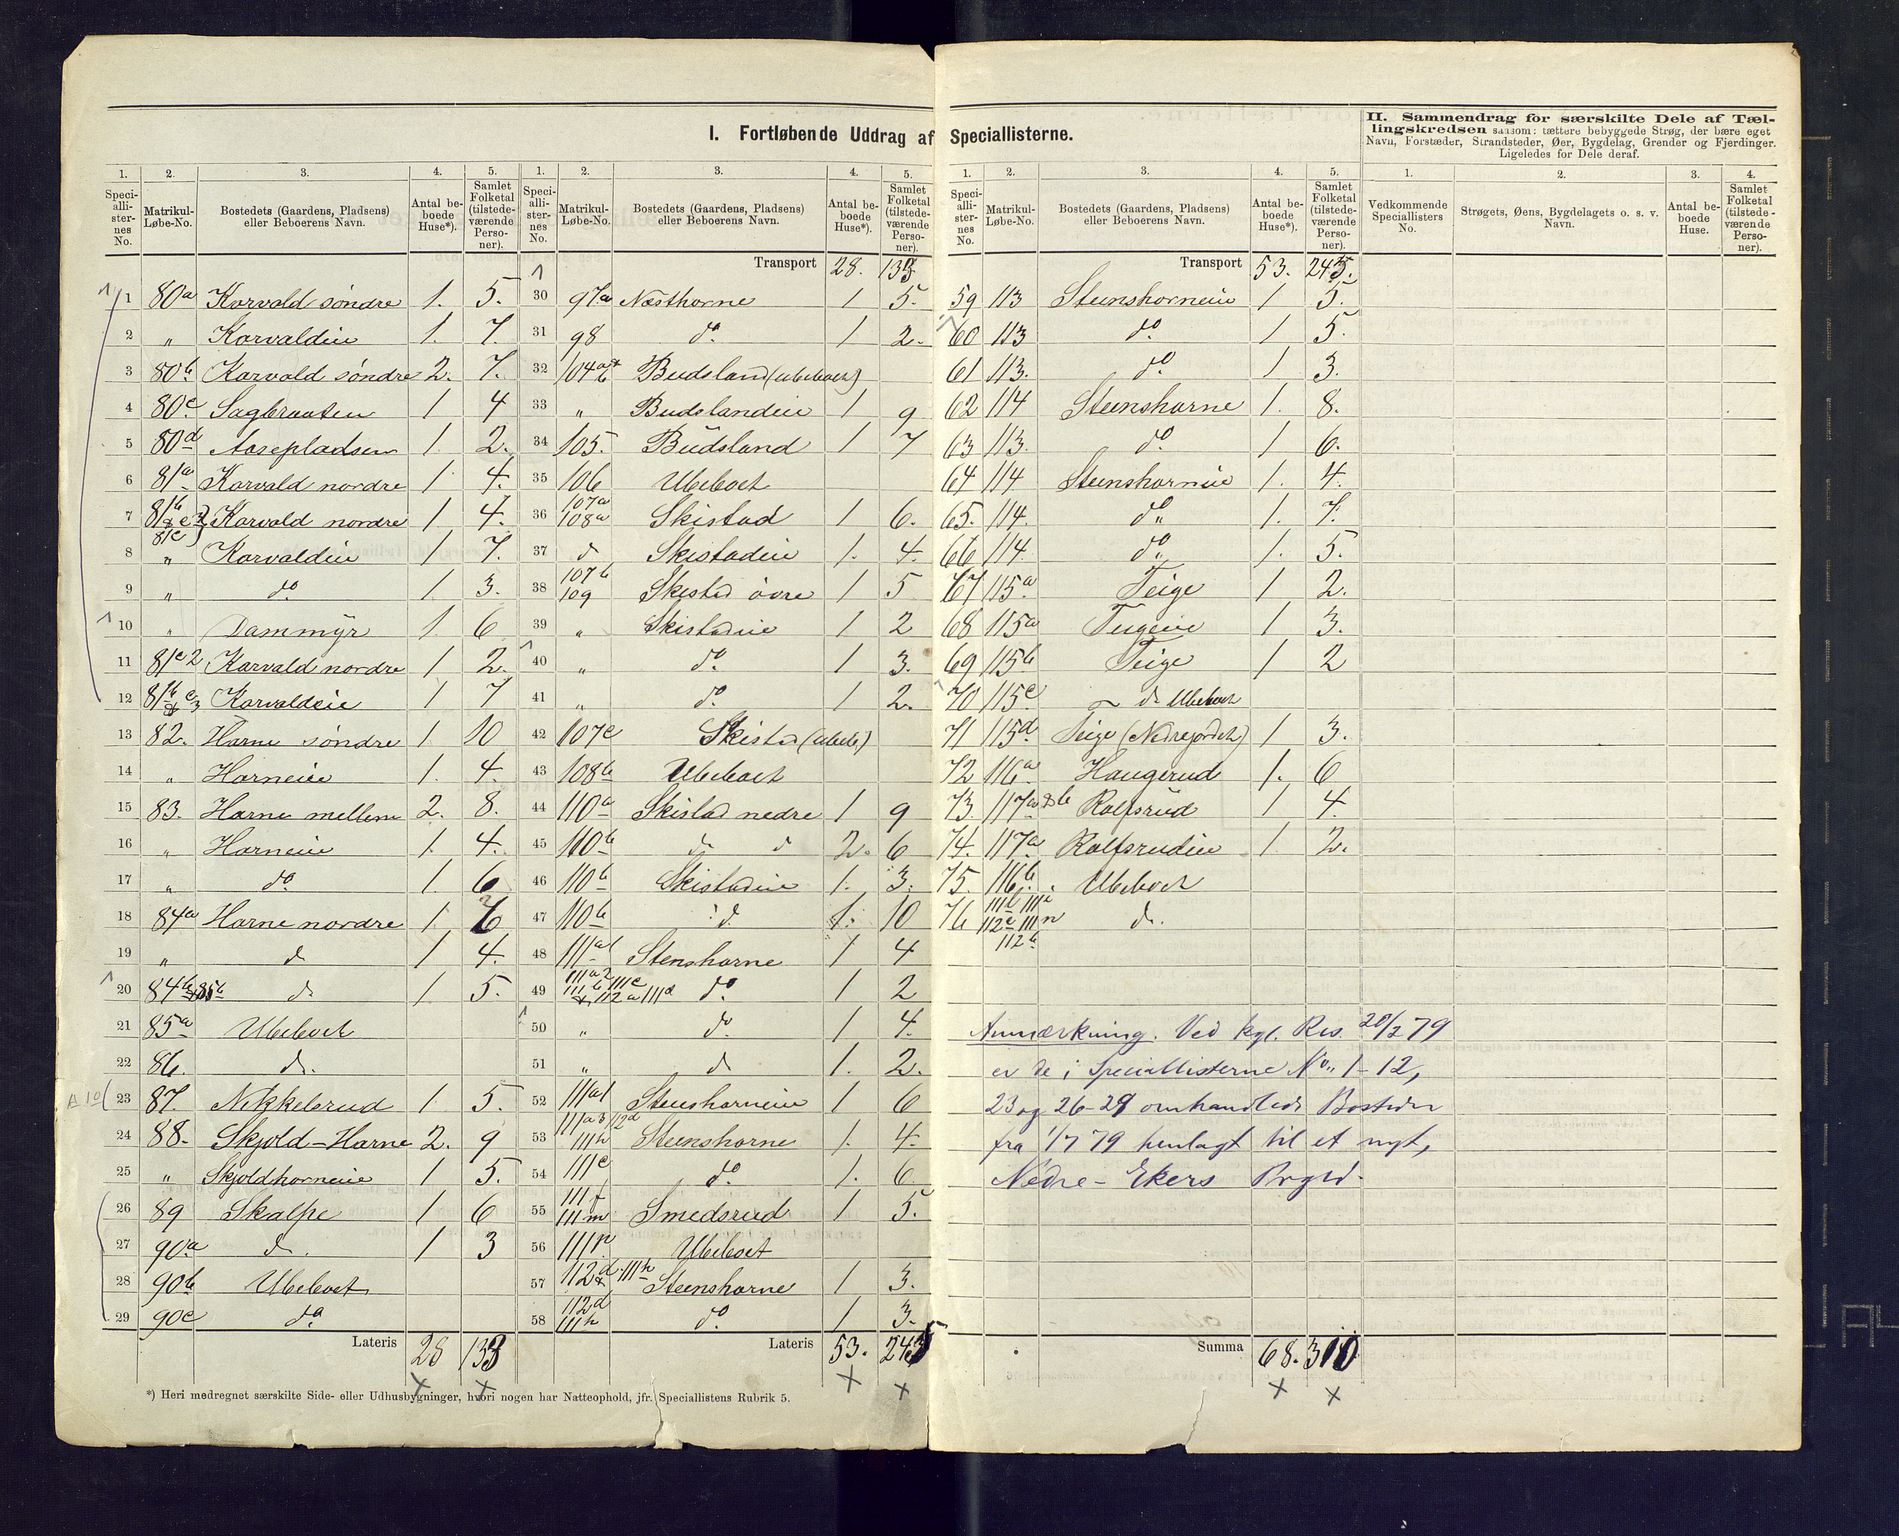 I. Fortløbende Uddrag af Speciallisterne.
II. Sammendrag for særskilte Dele af Tæl-
lingskredsen saasom: tættere bebyggede Strøg, der bære eget
Navn, Forstæder, Strandsteder, Øer, Bygdelag, Grender og Fjerdinger.
Ligeledes for Dele deraf.
1. 2. 3. 4. 5.
Speciallisternes No. Matrikul-Løbe-No. Bostedets (Gaardens, Pladsens) eller Beboerens Navn. Antal beboede Huse*). Samlet Folketal (tilstedeværende Personer).
1 80a Korvald søndre 1. 5.
2 " Korvaldeie 1. 7.
3 80b Korvald søndre 2. 7.
4 80c Sagbraaten 1 4
5 80d Aasepladsen 1 2.
6 81a Korvald nordre 1 4.
7 81b Korvald nordre 1 4.
8 " Korvaldeie 1 7.
9 " do 1 3.
10 " Dammyr 1 6
11 81c2 Korvald nordre 1 2.
12 81b Korvaldeie 1 7
13 82. Horne søndre 1. 10
14 " Horneie 1. 4.
15 83. Horne mellem 2. 8.
16 " Horneie 1. 4.
17 " do 1. 6
18 84a Horne nordre 1.
19 " d 1 4.
20 84b 85b d 1. 5.
21 85a Ubeboet
22 86. d.
23 87. Nikkelsrud 1. 5.
24 88. Skjold-Horne 2. 9
25 " Skjoldhorneie 1 5.
26 89 Skalpe 1 6
27 90a d. 1 3
28 90b Ubeboet
29 90c do
Lateris 28 133
*) Heri medregnet særskilte Side- eller Udhusbygninger, hvori nogen har Natteophold, jfr. Speciallistens Rubrik 5.
1. 2. 3. 4. 5.
Speciallisternes No. Matrikul-Løbe-No. Bostedets (Gaardens, Pladsens) eller Beboerens Navn. Antal beboede Huse*). Samlet Folketal (tilstedeværende Personer).
Transport 28. 133
30 97a Næsthorne 1 5.
31 98 do. 1 2.
32 104a+b Budsland (ubeboet)
33 " Budslandeie 1 9
34 105. Budsland 1 7
35 106 Ubeboet
36 107a 108a Skistad 1 6.
37 d Skistadeie 1. 4.
38 107b 109 Skistad övre 1 5
39 " Skistadeie 1 2
40 " do. 1 3.
41 " do. 1 2.
42 107c Skistad (ubeb)
43 108b Ubeboet
44 110a Skistad nedre 1 9
45 110b d d 2. 6
46 110b Skistadeie 1. 3.
47 110b d 1. 10
48 111a1 Stenshorne 1 4
49 111a2 111b 111c 112a 111d do. 1 2
50 " do. 1 4.
51 " d 1. 2.
52 111a1 Steenshorneie 1 6
53 111a3 112d 111h Steenshorne 1. 4.
54 111e do. 1. 6
55 111f 111m Smedsrud 1 5.
56 111p. Ubeboet
57 112d 111h Steenshorne 1 3.
58 112d 111h do. 1 3.
Lateris 53. 245
1. 2. 3. 4. 5.
Speciallisternes No. Matrikul-Løbe-No. Bostedets (Gaardens, Pladsens) eller Beboerens Navn. Antal beboede Huse*). Samlet Folketal (tilstedeværende Personer).
Transport 53. 245.
59 113 Steenshorneie 1 5.
60 113 do. 1 5.
61 113. do. 1 3.
62 114 Steenshorne 1. 8.
63 113. do 1 6.
64 114 Steenshorneie 1. 4.
65. 114. do" 1. 7.
66 114. do" 1. 5.
67 115a Teige 1 2.
68 115a Teigeie 1 3.
69 115b Teige 1 2
70 115c d Ubeboet
71 115d Teige (Nedrejordet) 1 3.
72 116a Haugerud 1. 6
73. 117a&b Rolfsrud 1 4.
74. 117a Rolfsrudeie 1. 2.
75. 116b. Ubeboet
76 111b 111c 112c 111n 112b d.
Anmærkning. Ved kgl. Res. 20/2 79
er de i Speciallisterne No. 1-12,
23 og 26-29 omhandlede Bosteder
fra 1/7 79 henlagt til et nyt,
Nedre-Ekers Prgld.
Summa 68. 310
1. 2. 3. 4.
Vedkommende Speciallisters No. Strøgets, Øens, Bygdelagets o. s. v. Navn. Antal beboede Huse. Samlet Folketal (tilstedeværende Personer).